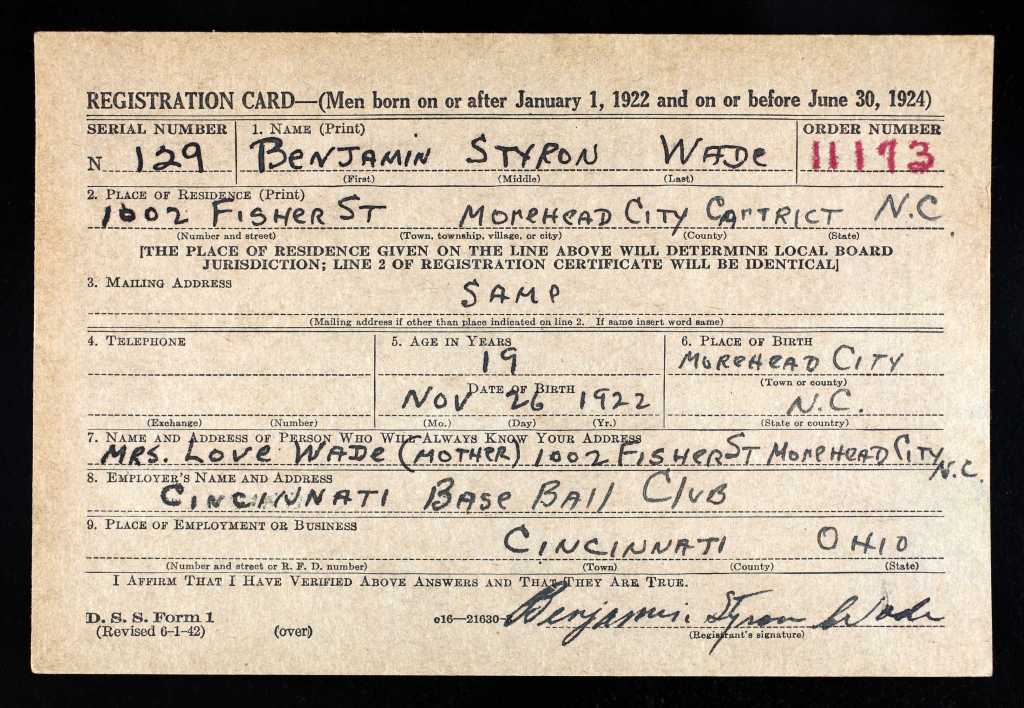 REGISTRATION CARD—(Men born on or after January 1, 1922 and on or before June 30, 1924)
SERIAL NUMBER 1. NAME (Print) ORDER NUMBER
N 129 BENJAMIN STYRON WADE 11173
(First) (Middle) (Last)
2. PLACE OF RESIDENCE (Print)
1002 FISHER ST MOREHEAD CITY CARTRICT N.C
(Number and street) (Town, township, village, or city) (County) (State)
[THE PLACE OF RESIDENCE GIVEN ON THE LINE ABOVE WILL DETERMINE LOCAL BOARD
JURISDICTION; LINE 2 OF REGISTRATION CERTIFICATE WILL BE IDENTICAL]
3. MAILING ADDRESS
SAME
(Mailing address if other than place indicated on line 2. If same insert word same)
4. TELEPHONE 5. AGE IN YEARS 6. PLACE OF BIRTH
19 MOREHEAD CITY
DATE OF BIRTH (Town or county)
NOV 26 1922 N.C.
(Exchange) (Number) (Mo.) (Day) (Yr.) (State or country)
7. NAME AND ADDRESS OF PERSON WHO WILL ALWAYS KNOW YOUR ADDRESS
MRS. LOVE WADE (MOTHER) 1002 FISHER ST MOREHEAD CITY N.C.
8. EMPLOYER'S NAME AND ADDRESS
CINCINNATI BASE BALL CLUB
9. PLACE OF EMPLOYMENT OR BUSINESS
CINCINNATI OHIO
(Number and street or R. F. D. number) (Town) (County) (State)
I AFFIRM THAT I HAVE VERIFIED ABOVE ANSWERS AND THAT THEY ARE TRUE.
D. S. S. Form 1 o16—21630 Benjamin Styron Wade
(Revised 6-1-42) (over) (Registrant's signature)